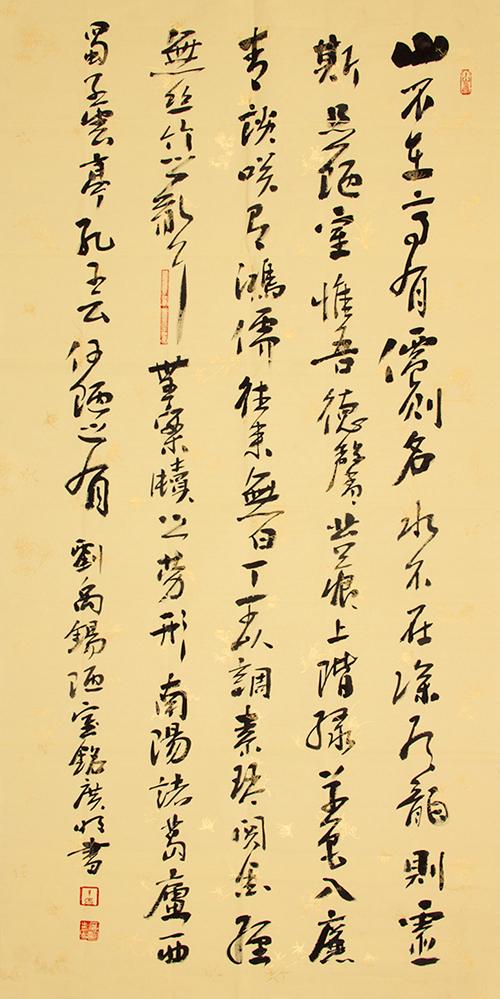 山不在高有僊則名水不在深有龍則靈
斯是陋室惟吾德馨苔痕上階綠草色入簾
青談咲有鴻儒往來無白丁可以調素琴閱金經
無絲竹之亂耳無案牘之勞形南陽諸葛廬西
蜀子雲亭孔子云何陋之有劉禹錫陋室銘書